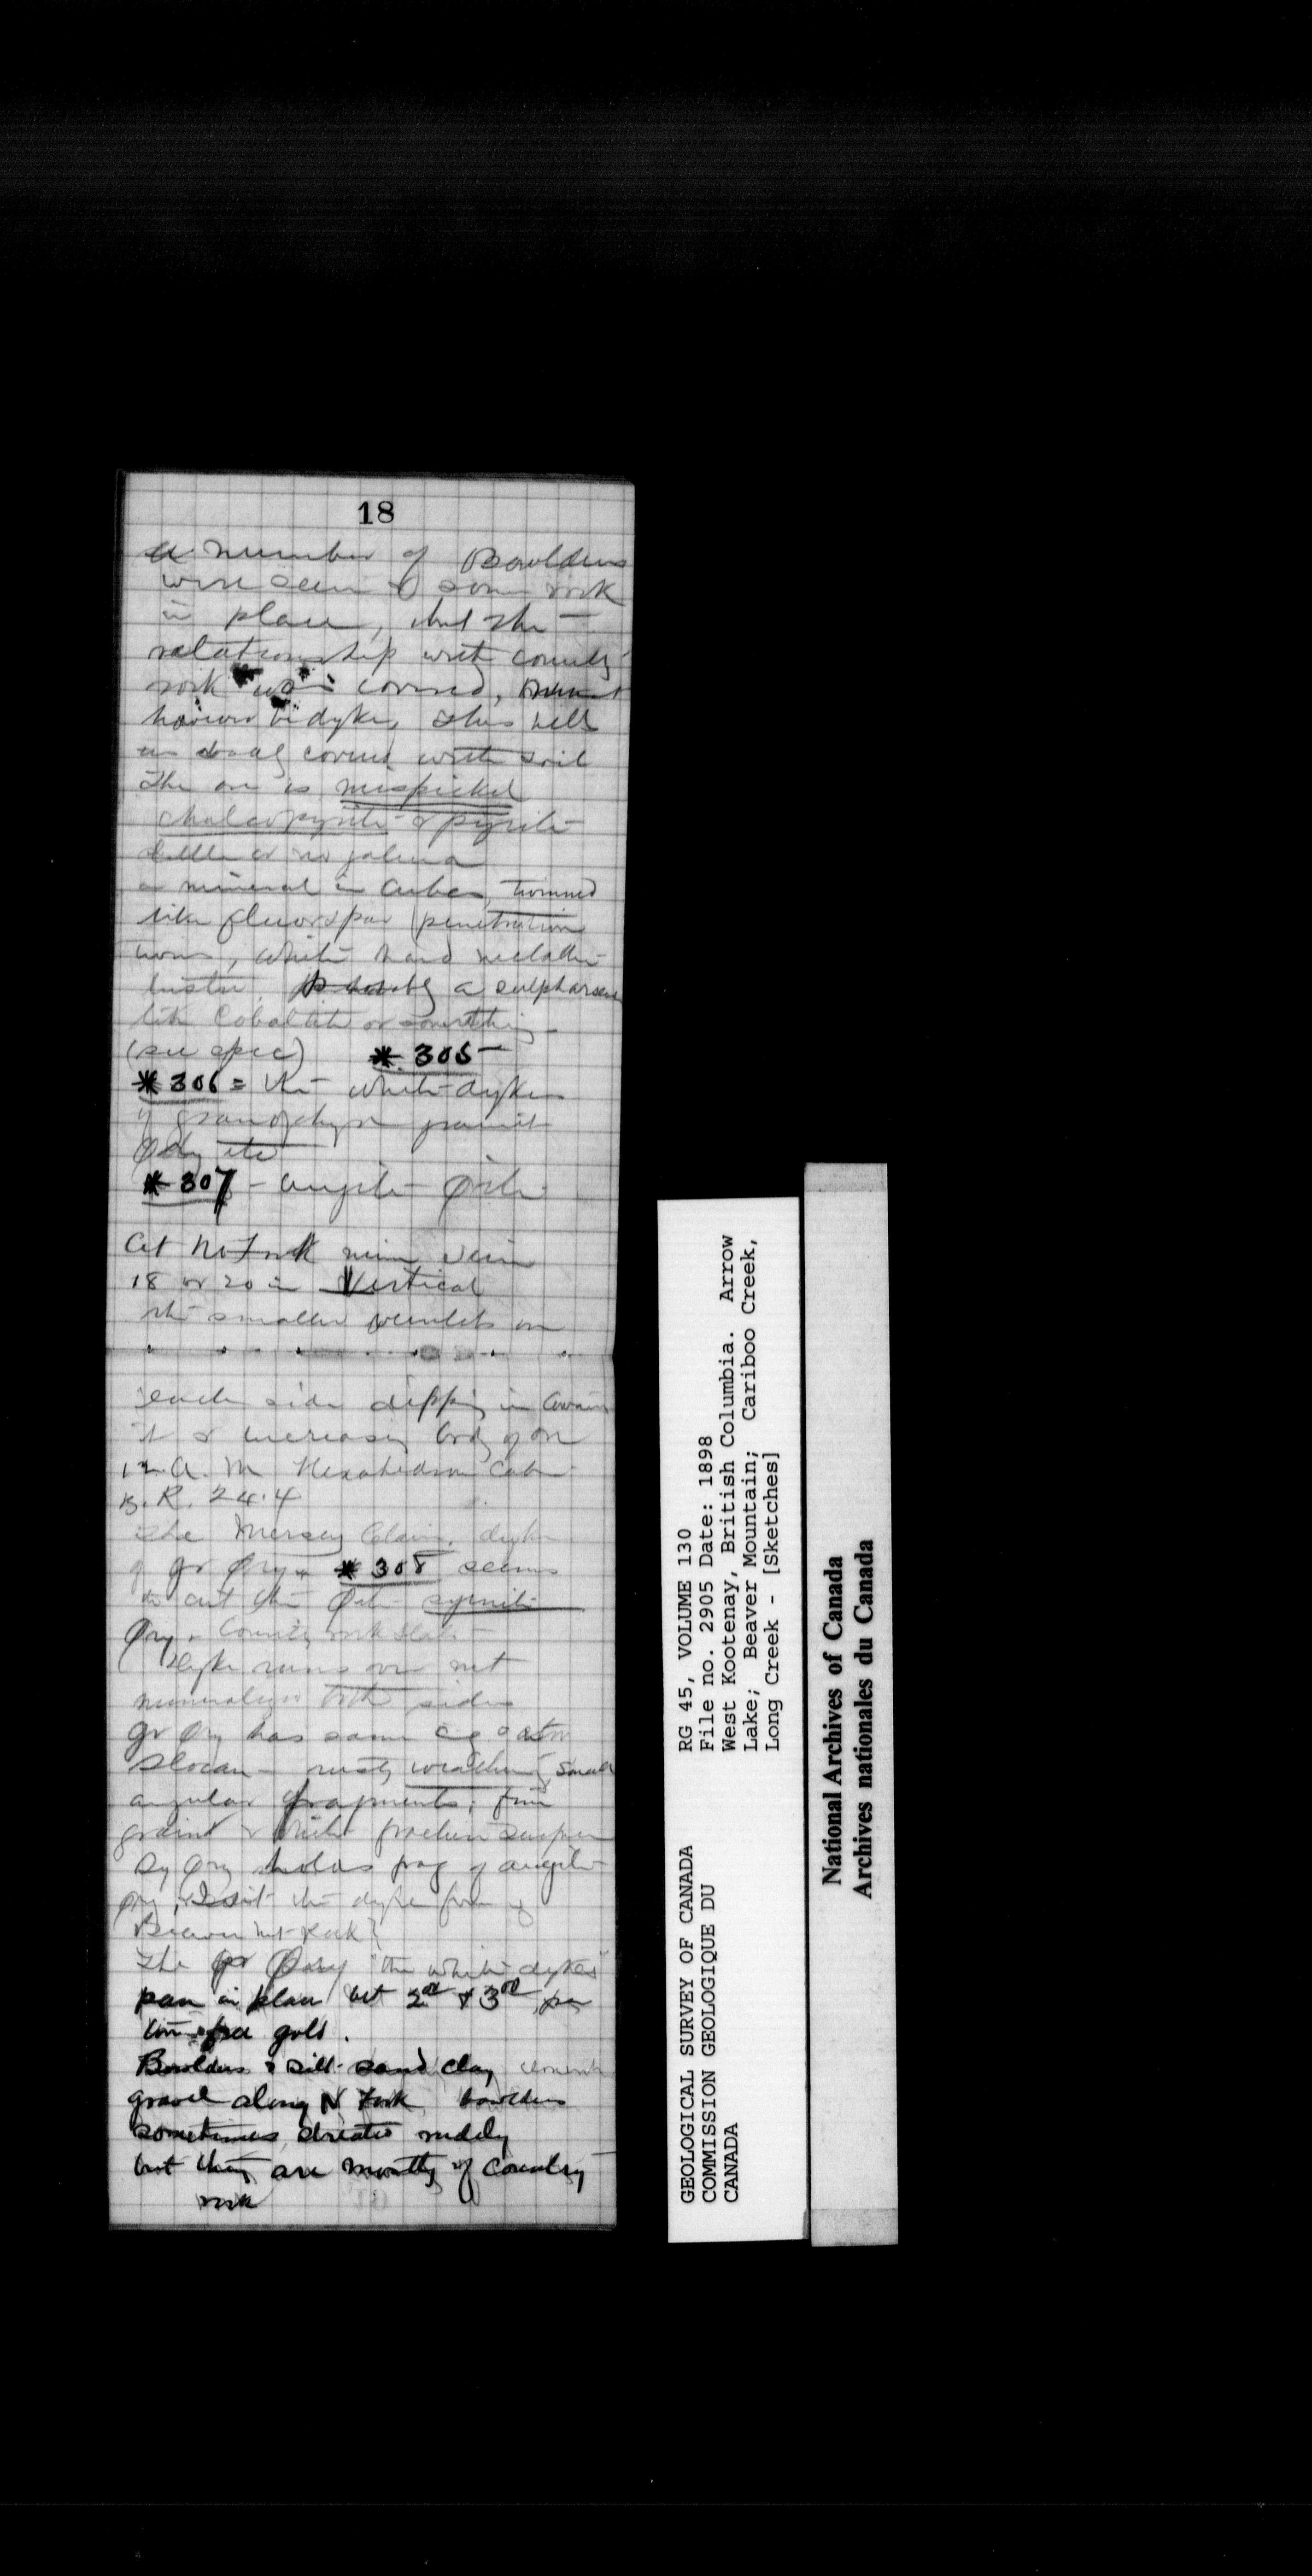 18
a number of Boulders
were seen & some rock
in place, but the
relationship with country
rock was covered, must
however be dyke, this hill
covered with soil
The ore is mispickel
chalcopyrite & pyrite
little or no galena
a mineral in cubes, twinned
like fluorspar penetration
twins, white hard metallic
lustre. Probably a sulpharsen
like Cobaltite or something
(see spec) * 305
* 306 = the white dykes
of granophyre granite
etc
* 307 - augite
At No Fork mine vein
18 or 20 in Vertical
the smaller veinlets on
each side dipping in towards
it & increasing body of ore
12 A. M Hexahedron Cabin
B. R. 24.4
The Mersey Claim. dyke
of gr * 308 seems
to cut the syenite
Country rock slate
Dyke runs
both sides
gr has same as
Slocan - rusty weathering, small
angular fragments; fine
grained & white fracture
holds frag of augite
the dyke from
Beaver Mt Rock
The gr "the white dykes"
pan in place but 2nd & 3rd
free gold.
Boulders & silt - sand clay
gravel along N Fork boulders
sometimes striated rudely
but they are mostly of country
rock
RG 45, VOLUME 130
File no. 2905 Date: 1898
West Kootenay, British Columbia. Arrow
Lake; Beaver Mountain; Cariboo Creek,
Long Creek - [Sketches]
GEOLOGICAL SURVEY OF CANADA
COMMISSION GEOLOGIQUE DU
CANADA
National Archives of Canada
Archives nationales du Canada